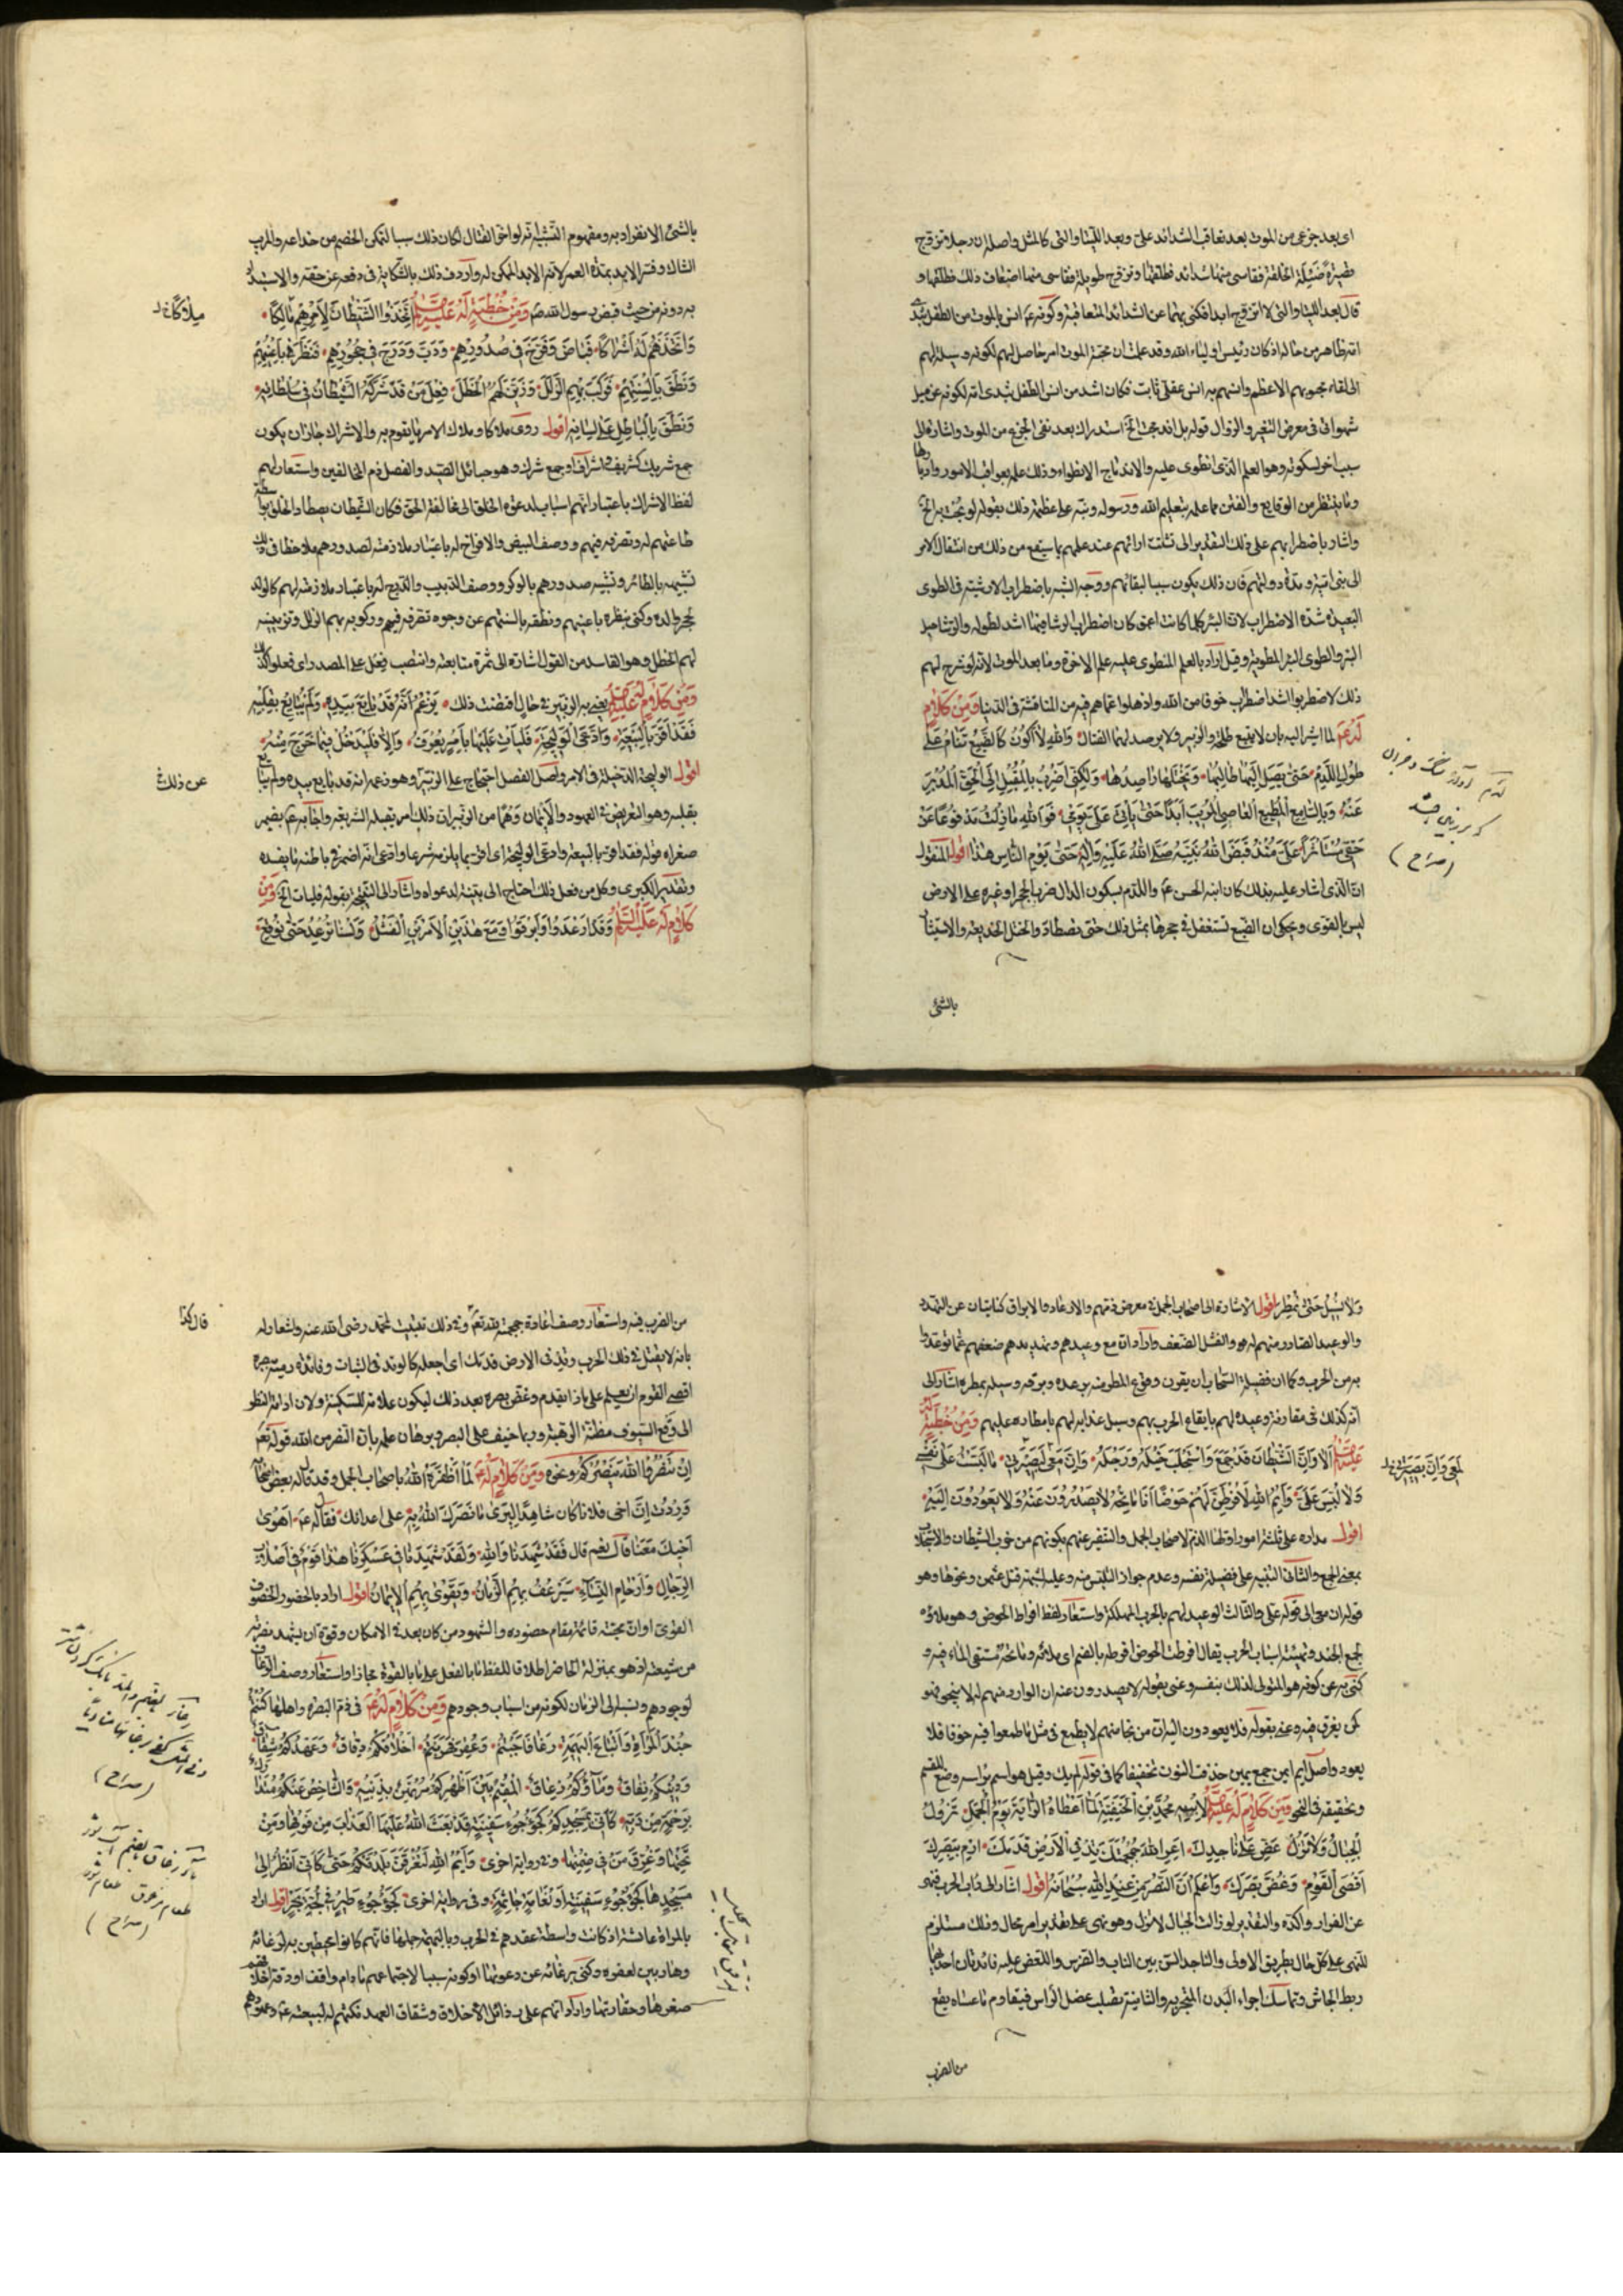 اى بعد جزعى من الموت بعد تعاقب الشدائد علىّ وبعد اللتيا والتى كالمثل واصله ان رجلا تزوج
قصيرة ضئيلة الخلقة فقاسى منها شدائد فطلقها وتزوج طويلة فقاسى منها اضعاف ذلك فطلقها و
قال بعد اللتيا والتى لا اتزوج ابدا فكنى بهما عن الشدائد المتعاقبة وكونه عم انس بالموت من الطفل بثدى
امه ظاهر من حاله اذ كان رئيس اولياء الله وقد علمت ان محبة الموت امر حاصل لهم لكونه وسيلة لهم
الى لقاء محبوبهم الاعظم وانسهم به انس عقلى ثابت فكان اشد من انس الطفل بثدى امه لكونه عن ميل
شهوانى فى معرض التغير والزوال قوله بل اندمجت الخ استدراك بعد نفى الجزع من الموت واشارة الى
سبب اخر لسكوته وهو العلم الذى انطوى عليه والاندماج الانطواء وذلك علمه بعواقب الامور وادبارها
وما ينتظر من الوقايع والفتن مما علمه بتعليم الله ورسوله ونبه على عظمة ذلك بقوله لو بحت به الخ
واشار باضطرابهم على ذلك التقدير الى تشتت ارائهم عند علمهم بما سيقع من ذلك من انتقال الامر
الى بنى امية ومدة دولتهم فان ذلك يكون سببا لبقائهم ووجه الشبه باضطراب الارشية فى الطوى
البعيدة شدة الاضطراب لان البئر كلما كانت اعمق كان اضطراب الرشا فيها اشد لطوله والرشا حبل
البئر والطوى البئر المطوية وقيل اراد بالعلم المنطوى عليه علم الاخرة وما بعد الموت لانه لو شرح لهم
ذلك لاضطربوا اشد اضطراب خوفا من الله واذهلوا عما هم فيه من المنافسة فى الدنيا ومن كلام
له عم لما اشير اليه بان لا يتبع طلحة والزبير ولا يرصد لهما القتال والله لا اكون كالضبع تنام على
طول اللدم حتى يصل اليها طالبها ويختلها راصدها ولكنى اضرب بالمقبل الى الحق المدبر
عنه وبالسامع المطيع العاصى المريب ابدا حتى ياتى على يومى فوالله ما زلت مدفوعا عن
حقى مستاثرا على منذ قبض الله نبيه صلى الله عليه واله حتى يوم الناس هذا اقول المنقول
ان الذى اشار عليه بذلك كان ابنه الحسن عم واللدم بسكون الدال ضرب الحجر او غيره على الارض
ليس بالقوى ويحكى ان الضبع تستغفل فى جحرها بمثل ذلك حتى تصطاد والختل الخديعة والاستيثار
بالشئ
لدم
(صراح)
بالشئ الانفراد به ومفهوم التشبيه انه لو اخر القتال لكان ذلك سببا لتمكن الخصم من خداعه والمريب
الشاك وفسر الابد بمدة العمر لانه الابد الممكن له واردف ذلك بالشكاية فى دفعه عن حقه والاستبداد
به دونه من حيث قبض رسول الله ص ومن خطبة له عليه السلام اتخذوا الشيطان لامرهم مالكا
واتخذهم له اشراكا فباض وفرخ فى صدورهم ودب ودرج فى حجورهم فنظر باعينهم
ونطق بالسنتهم فركب بهم الزلل وزين لهم الخطل فعل من قد شركه الشيطان فى سلطانه
ونطق بالباطل على لسانه اقول روى ملاكا وملاك الامر ما يقوم به والاشراك جاز ان يكون
جمع شريك كشريف واشراف او جمع شرك وهو حبائل الصيد والفصل ذم المخالفين واستعار لهم
لفظ الاشراك باعتبار انهم اسباب لدعوة الخلق الى مخالفة الحق فكان الشيطان يصطاد الخلق بواسطة
طاعتهم له وتصرفه فيهم ووصف البيض والافراخ له باعتبار ملازمته لصدورهم ملاحظا فى ذلك
تشبيهه بالطائر وتشبيه صدورهم بالوكر ووصف الدبيب والدرج له باعتبار ملازمته لهم كالولد
لحجر والده وكنى بنظره باعينهم ونطقه بالسنتهم عن وجوه تصرفه فيهم وركوبه بهم الزلل وتزيينه
لهم الخطل وهو الفاسد من القول اشارة الى ثمرة متابعته وانتصب فعل على المصدر اى فعلوا ذلك
ومن كلام له عليه السلام يعنى به الزبير فى حال اقتضت ذلك يزعم انه قد بايع بيده ولم يبايع بقلبه
فقد اقر بالبيعة وادعى الوليجة فليات عليها بامر يعرف والا فليدخل فيما خرج منه
اقول الوليجة الدخيلة فى الامر واصل الفصل احتجاج على الزبير وهو زعمه انه قد بايع بيده ولم يبايع
بقلبه وهو التعريض فى العهود والايمان وهما من الزبير ان ذلك امر يقبله الشريعة واجابه عم بضمير
صغراه قوله فقد اقر بالبيعة وادعى الوليجة اى اقر بما يلزمه شرعا وادعى انه اضمر فى باطنه ما يفسده
وتقدير الكبرى وكل من فعل ذلك احتاج الى بينة لدعواه واشار الى النتيجة بقوله فليات الخ ومن
كلام له عليه السلام وقد ارعدوا وابرقوا ومع هذين الامرين الفشل ولسنا نرعد حتى نوقع
ملاكا خ ل
عن ذلك
ولا نسيل حتى نمطر اقول الاشارة الى اصحاب الجمل فى معرض ذمهم والارعاد والابراق كنايتان عن التهدد
والوعيد الصادر منهم له عم والفشل الضعف واراد ان مع وعيدهم وتهديدهم ضعفهم عما توعدوا
به من الحرب وكما ان فضيلة السحاب ان يقرن وقوع المطر منه برعده وبرقه وسيله بمطره اشار الى
انه كذلك فى مقارنة وعيده لهم بايقاع الحرب بهم وسيل عذابه لهم بامطاره عليهم ومن خطبة له
عليه السلام الا وان الشيطان قد جمع حزبه واستجلب خيله ورجله وان معى لبصيرتى ما لبست على نفسى
ولا لبس على وايم الله لافرطن لهم حوضا انا ماتحه لا يصدرون عنه ولا يعودون اليه
اقول مداره على ثلثة امور اولها الذم لاصحاب الجمل والتنفير عنهم بكونهم من حزب الشيطان والاستجلاب
بمعنى الجمع والثانى التنبيه على فضيلة نفسه وعدم جواز التلبس منه وعليه لشبهة قتل عثمن ونحوها وهو
قوله ان معى الى قوله على والثالث الوعيد لهم بالحرب المهلكة واستعار لفظ افراط الحوض وهو ملاؤه
لجمع الجند وتهيئة اسباب الحرب يقال افرطت الحوض افرطه بالضم اى ملاته وماتحه مستقى الماء فيه و
كنى به عن كونه هو المتولى لذلك بنفسه وعنى بقوله لا يصدرون عنه ان الوارد منهم له لا ينجو فهو
كمن يغرق فيه وعنى بقوله فلا يعودون اليه ان من نجا منهم لا يطمع فى مثل ما طمعوا فيه خوفا فلا
يعود واصل ايم ايمن جمع يمين حذفت النون تخفيفا كما فى قولهم لم يك وقيل هو اسم براسه وضع للقسم
وتحقيقه فى النحو ومن كلام له عليه السلام لابنه محمد بن الحنفية لما اعطاه الراية يوم الجمل تزول
الجبال ولا تزل عض على ناجذك اعر الله جمجمتك تد فى الارض قدمك ارم ببصرك
اقصى القوم وغض بصرك واعلم ان النصر من عند الله سبحانه اقول اشار الى اداب الحرب فنهى
عن الفرار واكده والتقدير لو زالت الجبال لا تزل وهو نهى على تقدير امر محال وذلك مستلزم
للنهى على كل حال بطريق الاولى والناجذ السن بين الناب والضرس وللعض عليه فائدتان احديهما
ربط الجاش وتماسك اجزاء البدن المتحرك والثانية تصلب عضل الراس فيقاوم ما عساه يقع
من الضرب
معى وان بصيرتى خ ل
من الضرب فيه واستعار وصف اعارة جمجمته لله تع وفى ذلك تثبيت لمحمد رضى الله عنه واشعار له
بانه لا يقتل فى ذلك الحرب وتد فى الارض قدمك اى اجعله كالوتد فى الثبات وفائدة رميه بصره
اقصى القوم ان يعلم على ماذا يقدم وغض بصره بعد ذلك ليكون علامة للسكينة ولان ادامة النظر
الى وقع السيوف مظنة الرهبة وربما خيف على البصر وبرهان علمه بان النصر من الله قوله تع
ان تنصروا الله ينصركم ونحوه ومن كلام له عم لما اظفره الله باصحاب الجمل وقد قال له بعض اصحابه
وددت ان اخى فلانا كان شاهدا ليرى ما نصرك الله به على اعدائك فقال له عم اهوى
اخيك معنا قال نعم قال فقد شهدنا والله ولقد شهدنا فى عسكرنا هذا قوم فى اصلاب
الرجال وارحام النساء سيرعف بهم الزمان ويقوى بهم الايمان اقول اراد بالحضور الحضور
القوى او ان محبته قائمة مقام حضوره والشهود من كان بعد فى الامكان وقوة ان يشهد نصرته
من شيعته اذ هو بمنزلة الحاضر اطلاقا للفظ ما بالفعل على ما بالقوة مجازا واستعار وصف الرعاف
لوجودهم ونسبه الى الزمان لكونه من اسباب وجودهم ومن كلام له عم فى ذم البصرة واهلها كنتم
جند المراة واتباع البهيمة رغا فاجبتم وعقر فهربتم اخلاقكم دقاق وعهدكم شقاق
ودينكم نفاق وماؤكم زعاق المقيم بين اظهركم مرتهن بذنبه والشاخص عنكم متدارك
برحمة من ربه كانى بمسجدكم كجؤجؤ سفينة قد بعث الله عليها العذاب من فوقها ومن
تحتها وغرق من فى ضمنها وفى رواية اخرى وايم الله لتغرقن بلدتكم حتى كانى انظر الى
مسجدها كجؤجؤ سفينة او نعامة جاثمة وفى رواية اخرى كجؤجؤ طير فى لجة بحر اقول اراد
بالمراة عائشة اذ كانت واسطة عقدهم فى الحرب وبالبهيمة جملها فانهم كانوا محيطين به لرغائه
وهاربين لعقره وكنى برغائه عن دعوتها او كونه سببا لاجتماعهم ما دام واقفا ودقة اخلاقهم
صغرها وحقارتها واراد انهم على رذائل الاخلاق وشقاق العهد نكثهم له لبيعته عم وعهودهم
(صراح)
(صراح)